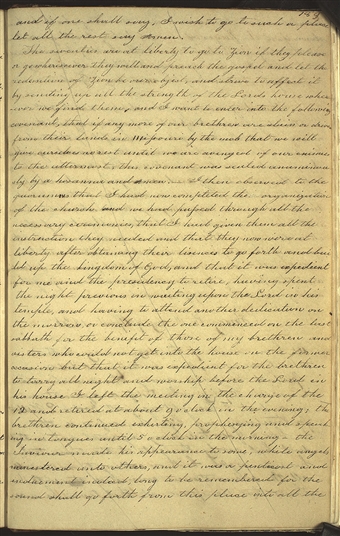 and if one shall say, I wish to go to such a place
let all the rest say amen.
The seventies are at liberty to go to Zion if they please
or go wherever they will and preach the gospel and let the
redemtion of Zion be our object, and strive to affect it
by sending up all the strength of the Lords house where-
ever we find them, and I want to enter into the following
covenant, that if any more of our brethren are slain or driven
from their lands in Missouri by the mob that we will
give ourselves no rest until we are avenged of our enimies
to the uttermost, this covenant was sealed unanimous-
ly by a hosanna and amen. — I then observed to the
quorums that I had now completed the organization
of the church and we had passed through all the
necessary ceremonies, that I had given them all the
instruction they needed and that they now were at
liberty after obtaining their lisences to go forth and bui-
ld up the kingdom of God, and that it was expedient
for me and the presidency to retire, having spent
the night previous in waiting upon the Lord in his
temple, and having to attend another dedication on
the morrow, or conclude the one commenced on the last
sabbath for the benifit of those of my brethren and
sisters who could not get into the house on the former
occasion but that it was expedient for the brethren
to tarry all night and worship before the Lord in
his house I left the meeting in the charge of the
12 and retired at about 9 o clock in the evening; the
brethren continued exhorting, prophesying and speak-
ing in tongues until 5 o clock in the morning — the
Saviour made his appearance to some, while angels
minestered unto others, and it was a penticost and
enduement indeed, long to be remembered for the
sound shall go forth from this place into all the